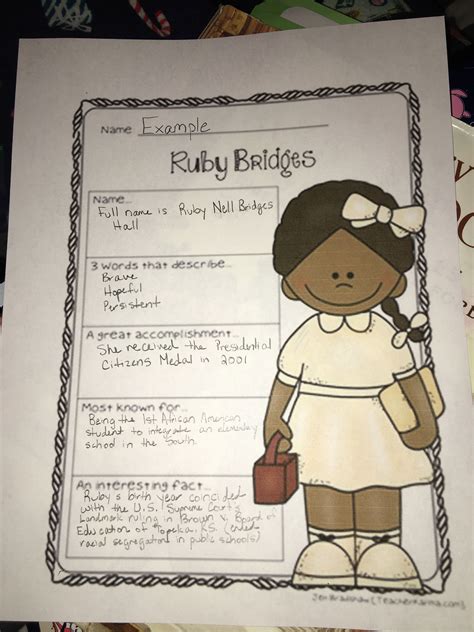 Name Example
Ruby Bridges
Name...
Full name is Ruby Nell Bridges
Hall
3 words that describe...
Brave
Hopeful
Persistent
A great accomplishment...
She received the Presidential
Citizens Medal in 2001
Most known for...
Being the 1st African American
student to integrate an elementary
school in the South.
An interesting fact...
Ruby's birth year coincided
with the U.S. Supreme Court's
Landmark ruling in Brown v Board of
Education of Topeka, KS (ended
racial segregation in public schools)
Jen Bradshaw (TeacherKarma.com)